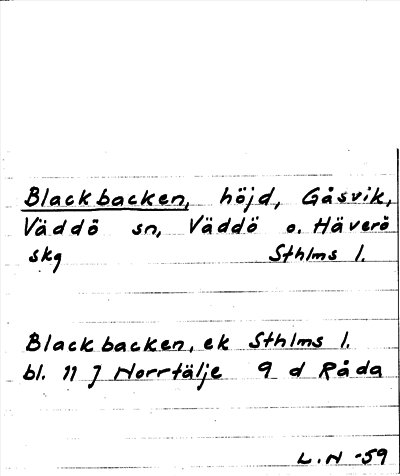 Blackbacken, höjd, Gåsvik,
Väddö sn, Väddö o. Häverö
skg Sthlms l.
Blackbacken, ek Sthlms l.
bl. 11 J Norrtälje 9 d Råda
L.N -59